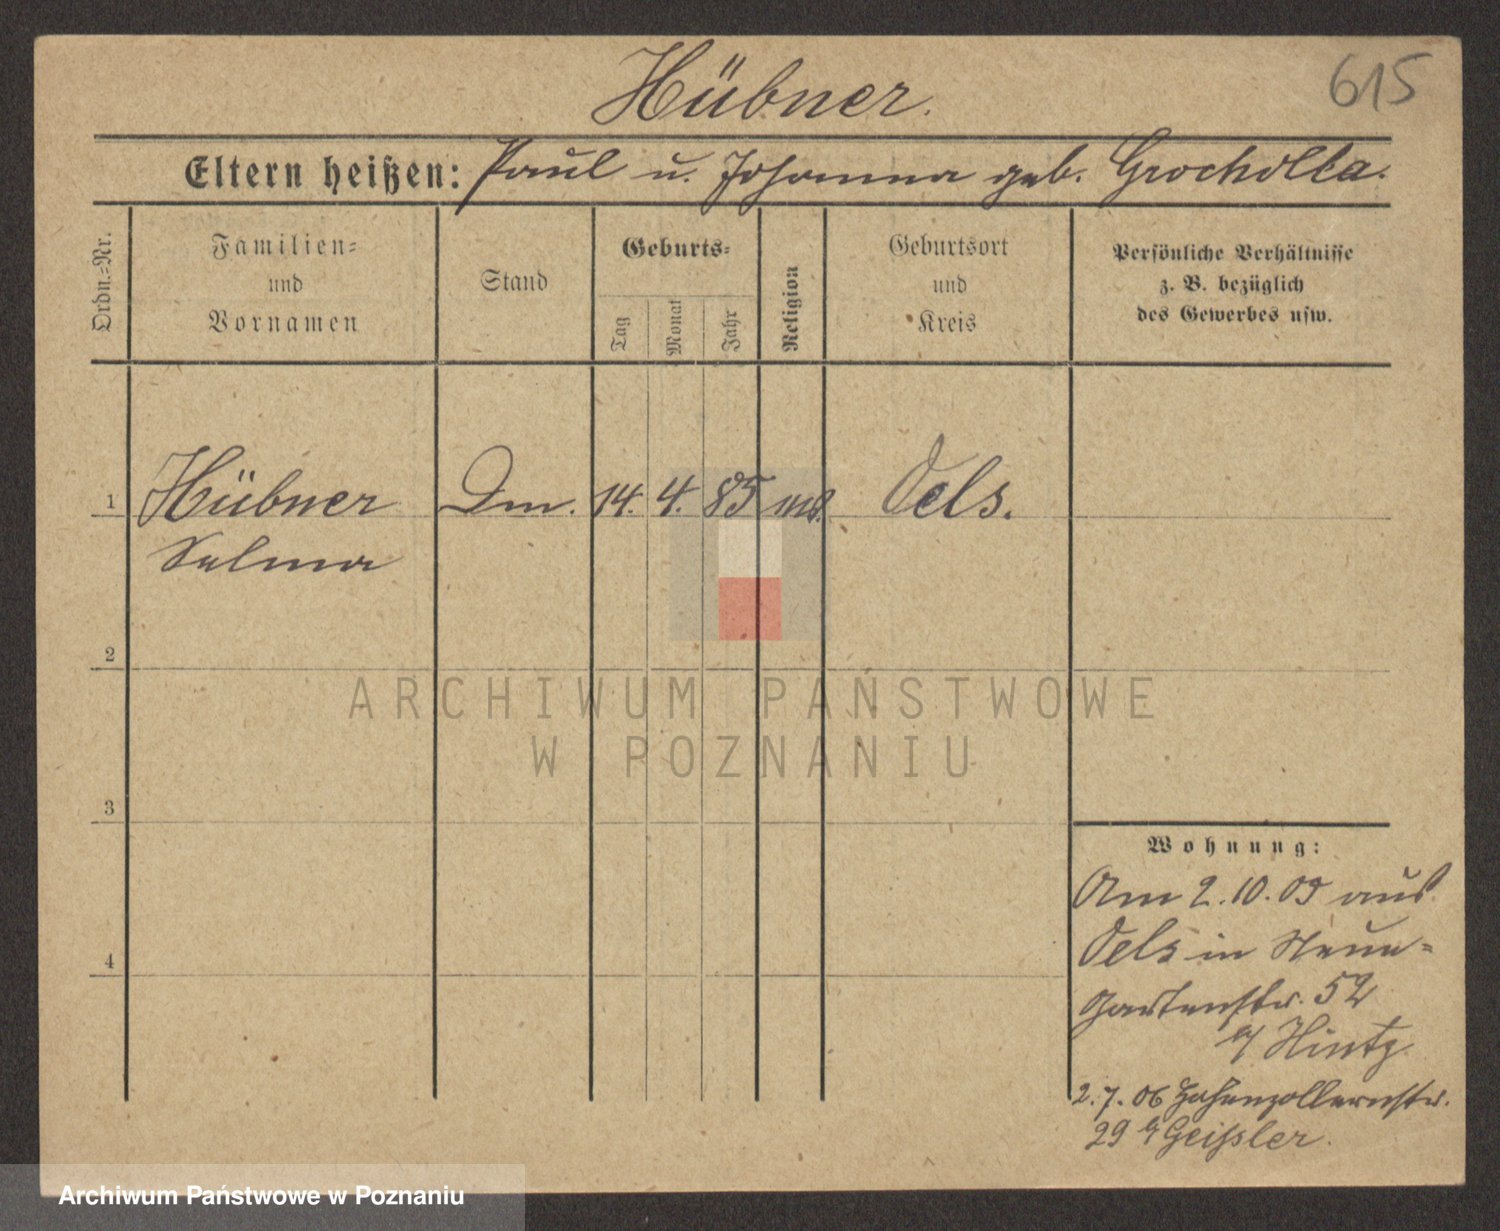 615
Hübner.
Eltern heißen: Paul u. Johanna geb. Grocholla.
Ordn.=Nr.
Familien=
und
Vornamen
Stand
Geburts=
Tag
Monat
Jahr
Religion
Geburtsort
und
Kreis
Persönliche Verhältnisse
z. B. bezüglich
des Gewerbes usw.
1 Hübner 14. 4. 85 Oels.
Selma
2
3
4
Wohnung:
Am 2.10.05 aus
Oels in Neue=
Gartenstr. 52
b/ Hintz
2.7.06 Hohenzollernstr.
29 b/ Geißler.
ARCHIWUM PAŃSTWOWE
W POZNANIU
Archiwum Państwowe w Poznaniu